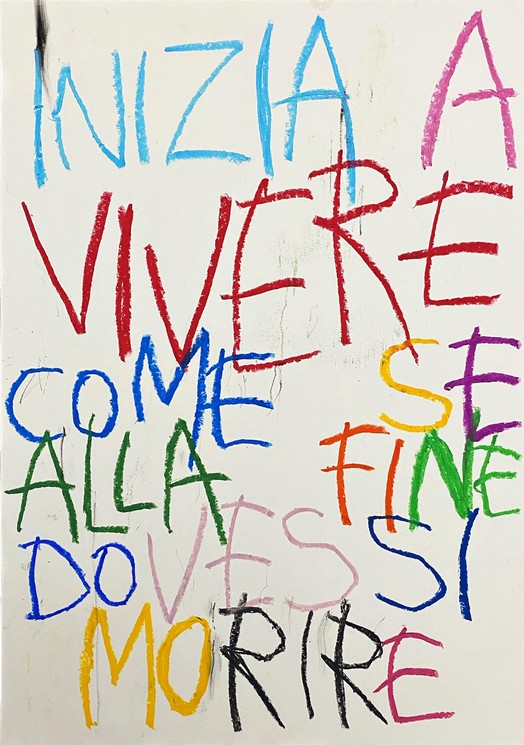 INIZIA A
VIVERE
COME SE
ALLA FINE
DOVESSI
MORIRE